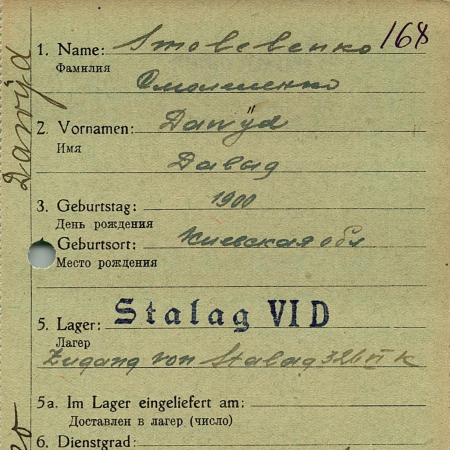 168
1. Name: Smolebenko
Фамилия
Смолиенко
2. Vornamen: Dawÿd
Имя
Давад
3. Geburtstag: 1900
День рождения
Geburtsort: Киевская обл
Место рождения
5. Lager: Stalag VI D
Лагер
Zugang von Stalag 326 VI K
5a. Im Lager eingeliefert am:
Доставлен в лагер (число)
6. Dienstgrad:
Dawÿd